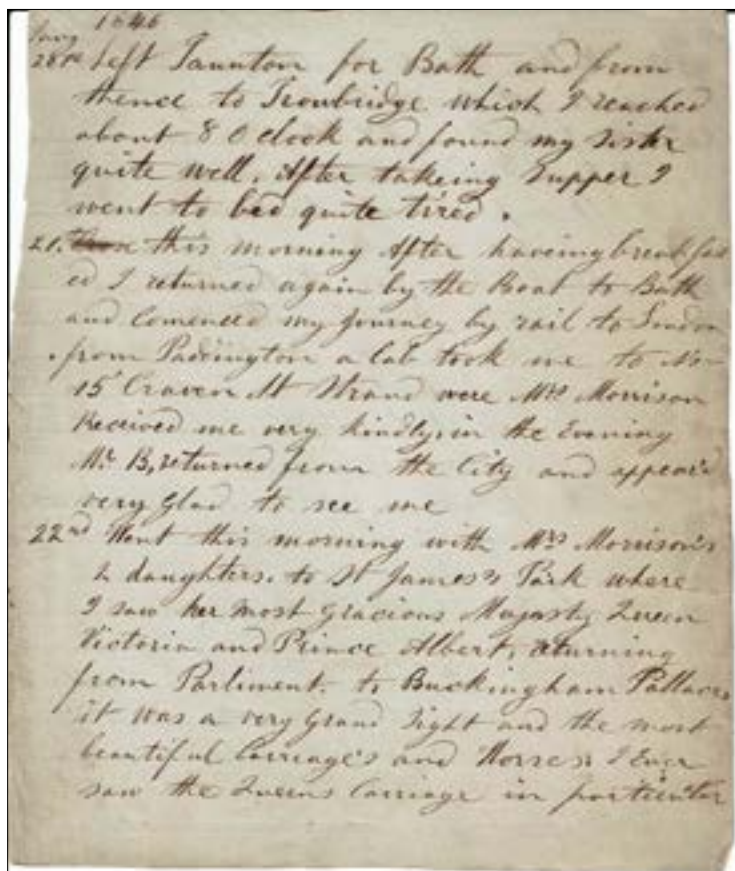 1846
Jany
20th Left Taunton for Bath and from
thence to Trowbridge which I reached
about 8 O clock and found my Sister
quite well. After takeing Supper I
went to bed quite tired.
21. this morning After haveing breakfast
ed I returned again by the Boat to Bath
and Comenced my Journey by rail to London
from Paddington a Cab took me to No
15 Craven St Strand were Mrs Morrison
Received me very kindly, in the Evening
Mr B, returned from the City and appear'd
very Glad to see me
22nd Went this morning with Mrs Morrison's
2 daughters. to St James's Park where
I saw her most Gracious Majasty Queen
Victoria and Prince Albert, returning
from Parliment. to Buckingham Pallace,
it was a very Grand Sight and the most
beautiful Carriage's and Horses I Ever
saw the Queens Carriage in particular